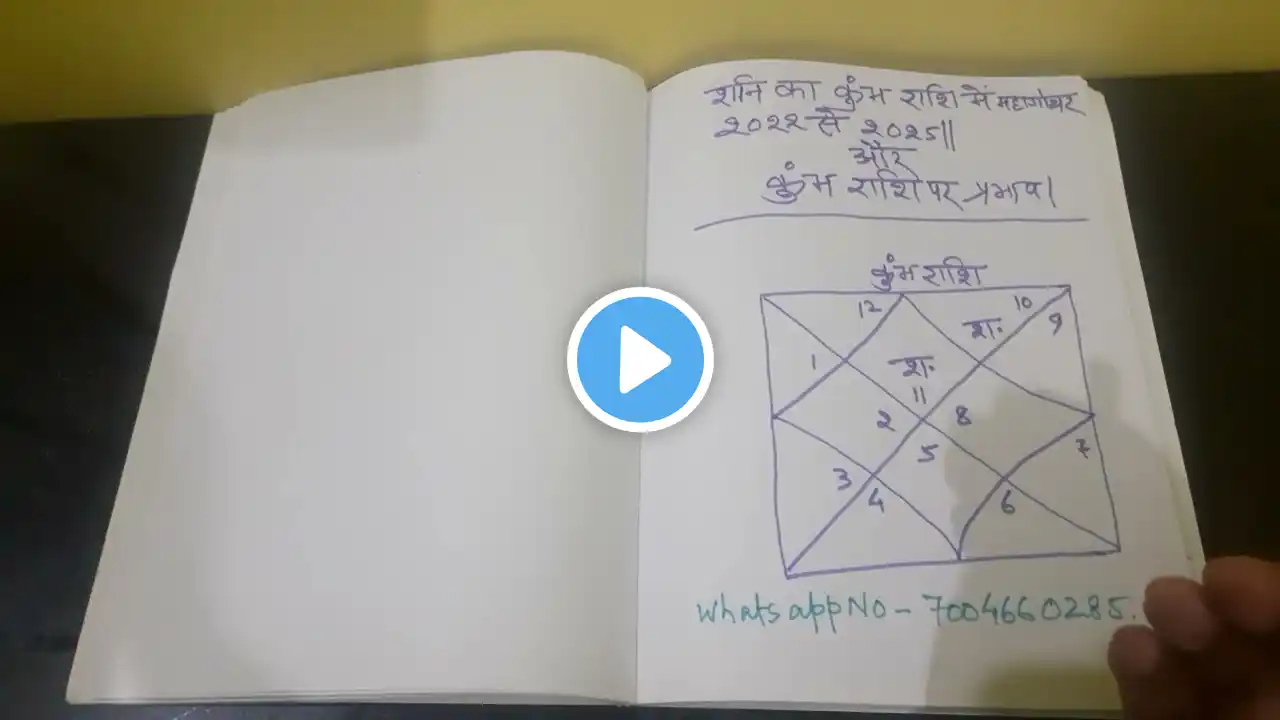 शनि का कुंभ राशि में महागोचर
२०२२ से २०२५||
और
कुंभ राशि पर प्रभाव|
कुंभ राशि
12
10
श.
9
1
श.
11
2
8
5
7
3
4
6
Whatsapp No - 7004660285.